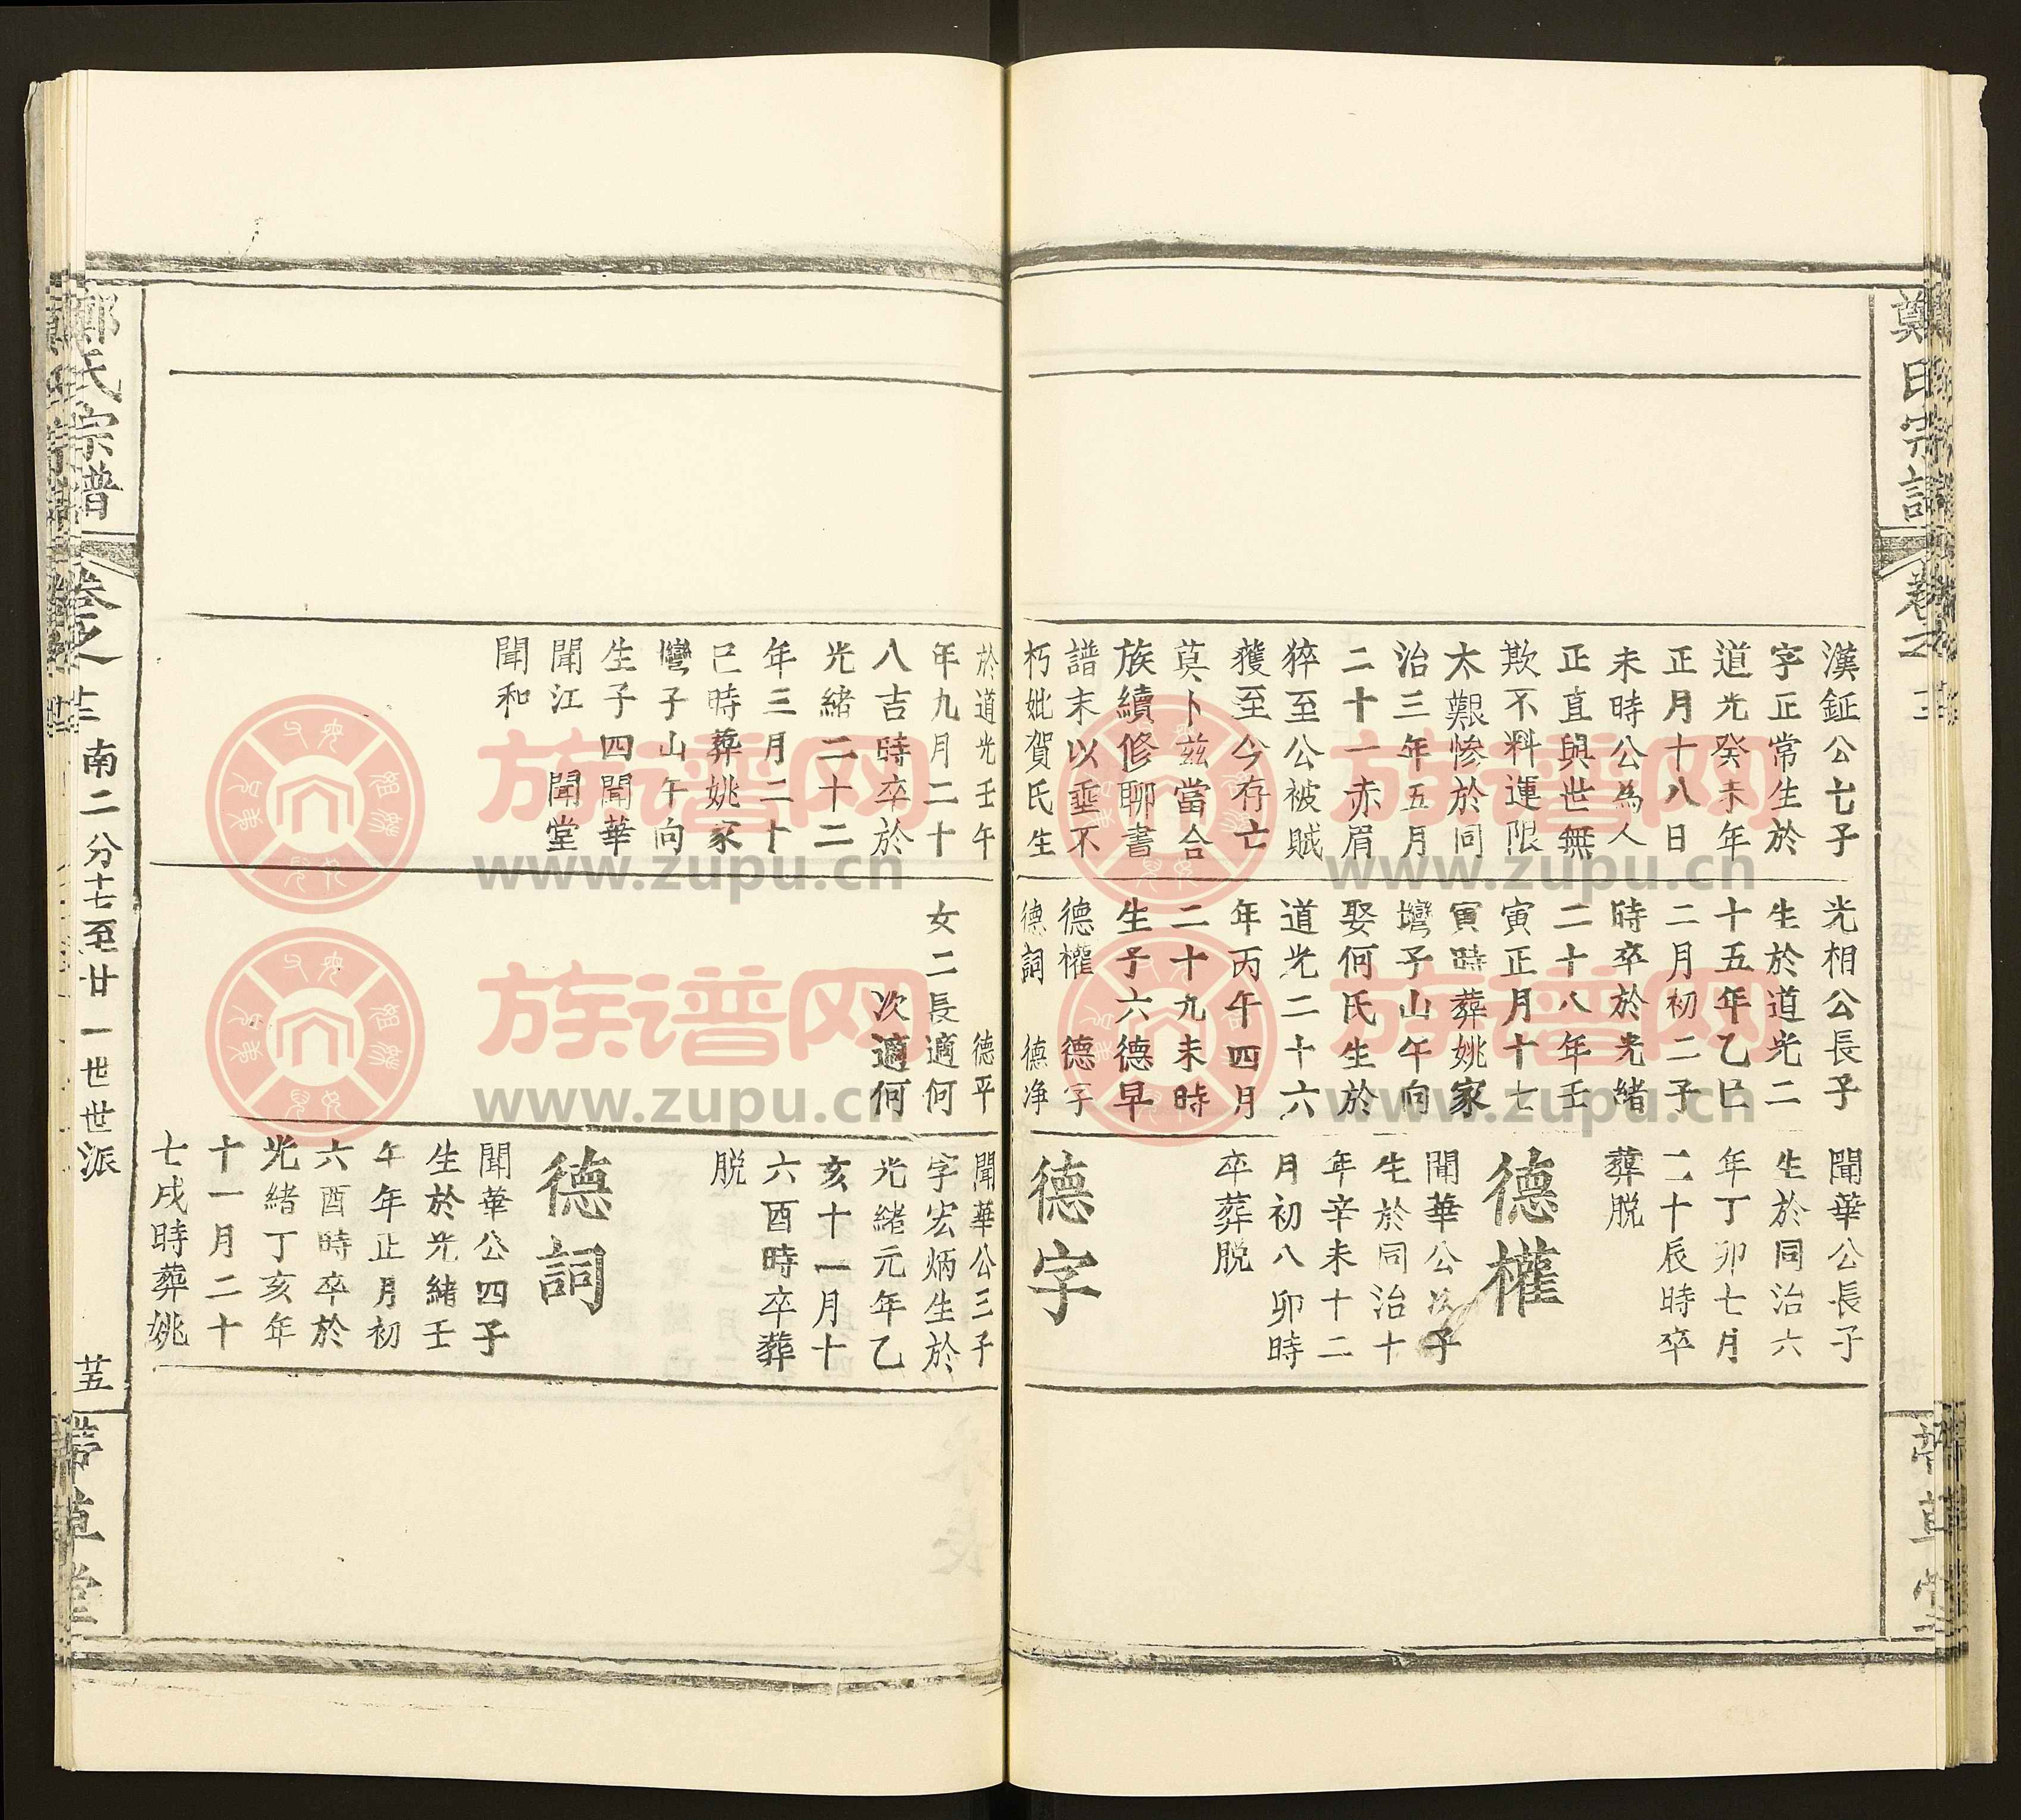 漢鉦公七子
字正常生於
道光癸未年
正月十八日
未時公為人
正直與世無
欺不料運限
太艱慘於同
治三年五月
二十一赤眉
猝至公被賊
獲至今存亡
莫卜兹當合
族續修聊書
譜末以垂不
朽妣賀氏生
光相公長子
生於道光二
十五年乙巳
二月初二子
時卒於光緒
二十八年壬
寅正月十七
寅時葬姚家
壪子山午向
娶何氏生於
道光二十六
年丙午四月
二十九未時
生子六德早
德權 德字
德詞 德净
聞華公長子
生於同治六
年丁卯七月
二十辰時卒
葬脱
德權
聞華公次子
生於同治十
年辛未十二
月初八卯時
卒葬脱
德字
於道光壬午
年九月二十
八吉時卒於
光緒二十二
年三月二十
巳時葬姚家
壪子山午向
生子四聞華
聞江 聞堂
聞和
德平
女二長適何
次適何
聞華公三子
字宏炳生於
光緒元年乙
亥十一月十
六酉時卒葬
脱
德詞
聞華公四子
生於光緒壬
午年正月初
六酉時卒於
光緒丁亥年
十一月二十
七戌時葬姚
鄭氏宗譜
卷之
南二分十七至廿一世世派
族谱网
www.zupu.cn
族谱网
www.zupu.cn
族谱网
www.zupu.cn
族谱网
www.zupu.cn